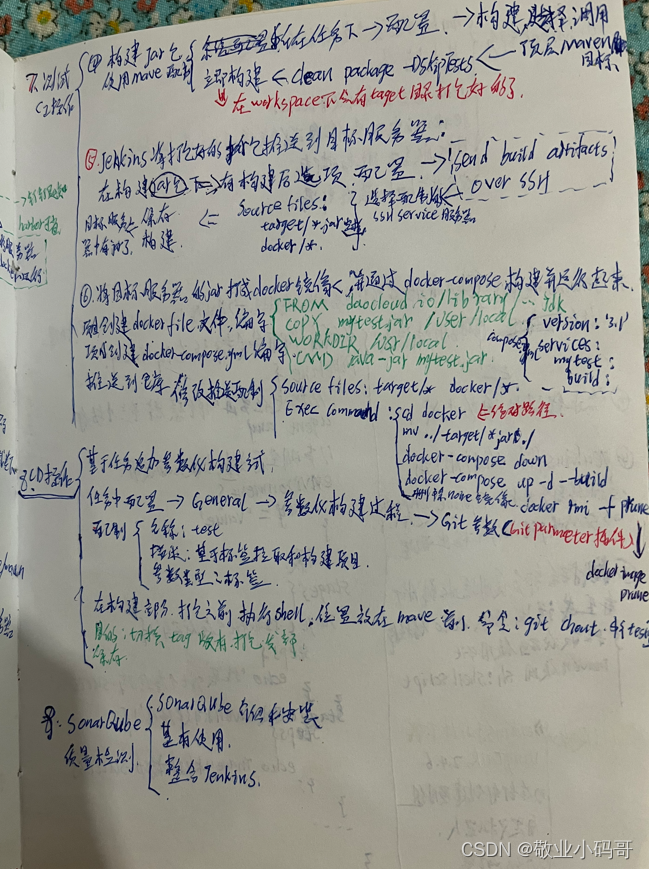 7. 测试
CI操作
④ 构建jar包
使用mave
在任务下 → 配置 → 构建 选择:调用
顶层maven
目标
立即构建 ← clean package -DskipTests ←
在workspace下会有taget目录打包好的了
⑤. Jenkins 将打包好的 推送到目标服务器:
在构建 有构建后选项 配置. → send build artifacts
over SSH
Source files:
target/*.jar
docker/*.
选择配置的
SSH service服务器
⇐
保存
构建
目标服务
⑥. 将目标服务器的jar打成docker镜像 并通过 docker-compose 构建并运行起来.
项目创建dockerfile文件, 编写
FROM daocloud.io/library/... jdk
COPY mytest.jar /user/local
WORKDIR /usr/local
CMD java-jar mytest.jar.
项目创建docker-compose.yml 编写
version: '3.1'
services:
mytest:
build:
推送到仓库 修改推送配制
Source files: target/* docker/*.
Exec command: cd docker
mv ../target/*.jar ./
docker-compose down
docker-compose up -d --build
删除none镜像 docker rmi -f
docker image
prune
8. CD操作
基于任务添加参数化构建式
任务中配置 → General → 参数化构建过程. → Git参数(Git parmeter插件)
配制
名称: test
描述: 基于标签拉取和构建项目
参数类型: 标签
在构建部分. 打包之前 执行shell. 位置放在mave 前. 命令: git
目的: 切换 tag 版本 打包
保存.
SonarQube
质量检测.
SonarQube 介绍和安装
基本使用.
整合Jenkins.
CSDN @敬业小码哥